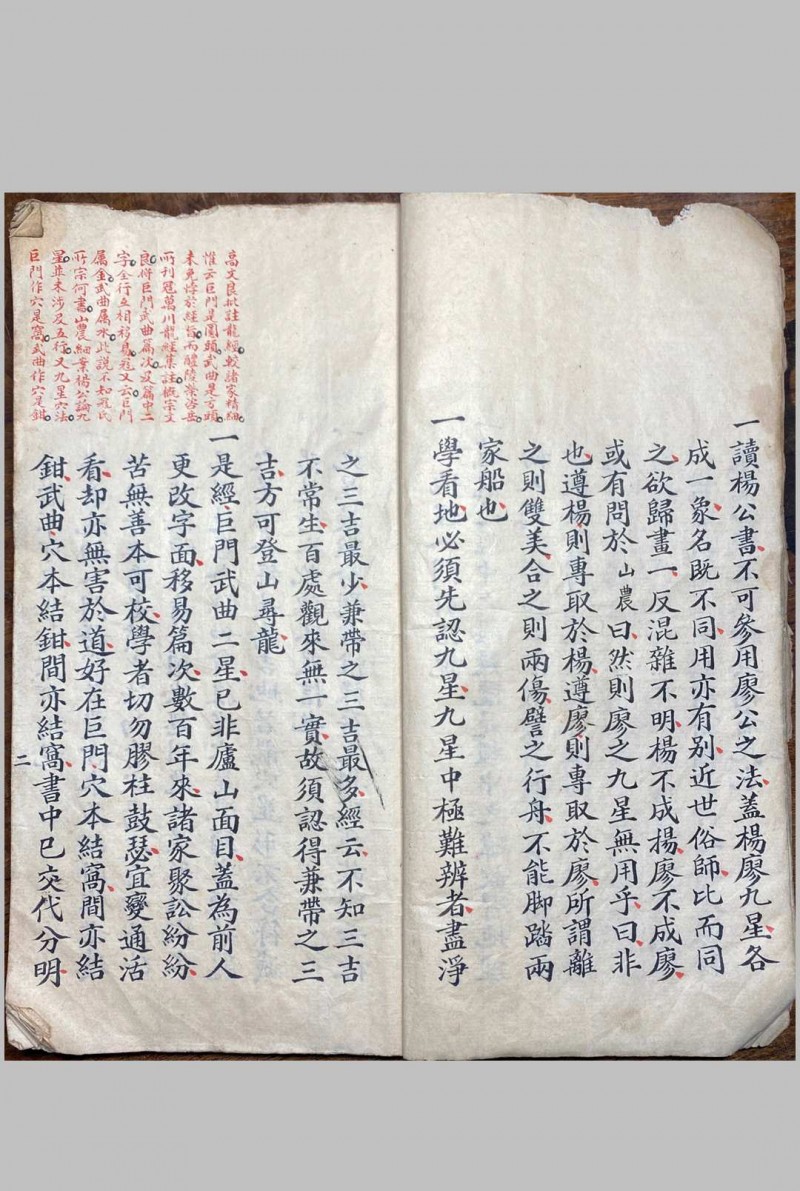 一讀楊公書不可參用廖公之法蓋楊廖九星各
成一象名既不同用亦有别近世俗師比而同
之欲歸畫一反混雜不明楊不成揚廖不成廖
或有問於山農曰然則廖之九星無用乎曰非
也遵楊則專取於楊遵廖則專取於廖所謂離
之則雙美合之則兩傷譬之行舟不能脚踏兩
家船也
一學看地必須先認九星九星中極難辨者盡淨
之三吉最少兼帶之三吉最多經云不知三吉
不常生百處觀來無一實故須認得兼帶之三
吉方可登山尋龍
一是經巨門武曲二星已非廬山面目蓋為前人
更改字面移易篇次數百年來諸家聚訟紛紛
苦無善本可校學者切勿膠柱鼓瑟宜變通活
看却亦無害於道好在巨門穴本結窩間亦結
鉗武曲穴本結鉗間亦結窩書中已交代分明
高文良批註龍經較諸家精細
惟云巨門是圓頭武曲是方頭
未免悖於經旨而醴陵榮浴岳
所刊冠萬川龍經集註概宗文
良將巨門武曲篇次及篇中二
字全行互相移易冠又云巨門
属金武曲属水此說不知冠氏
所宗何書山農細案楊公論九
星並未涉及五行又九星穴法
巨門作穴是窩武曲作穴是鉗
二